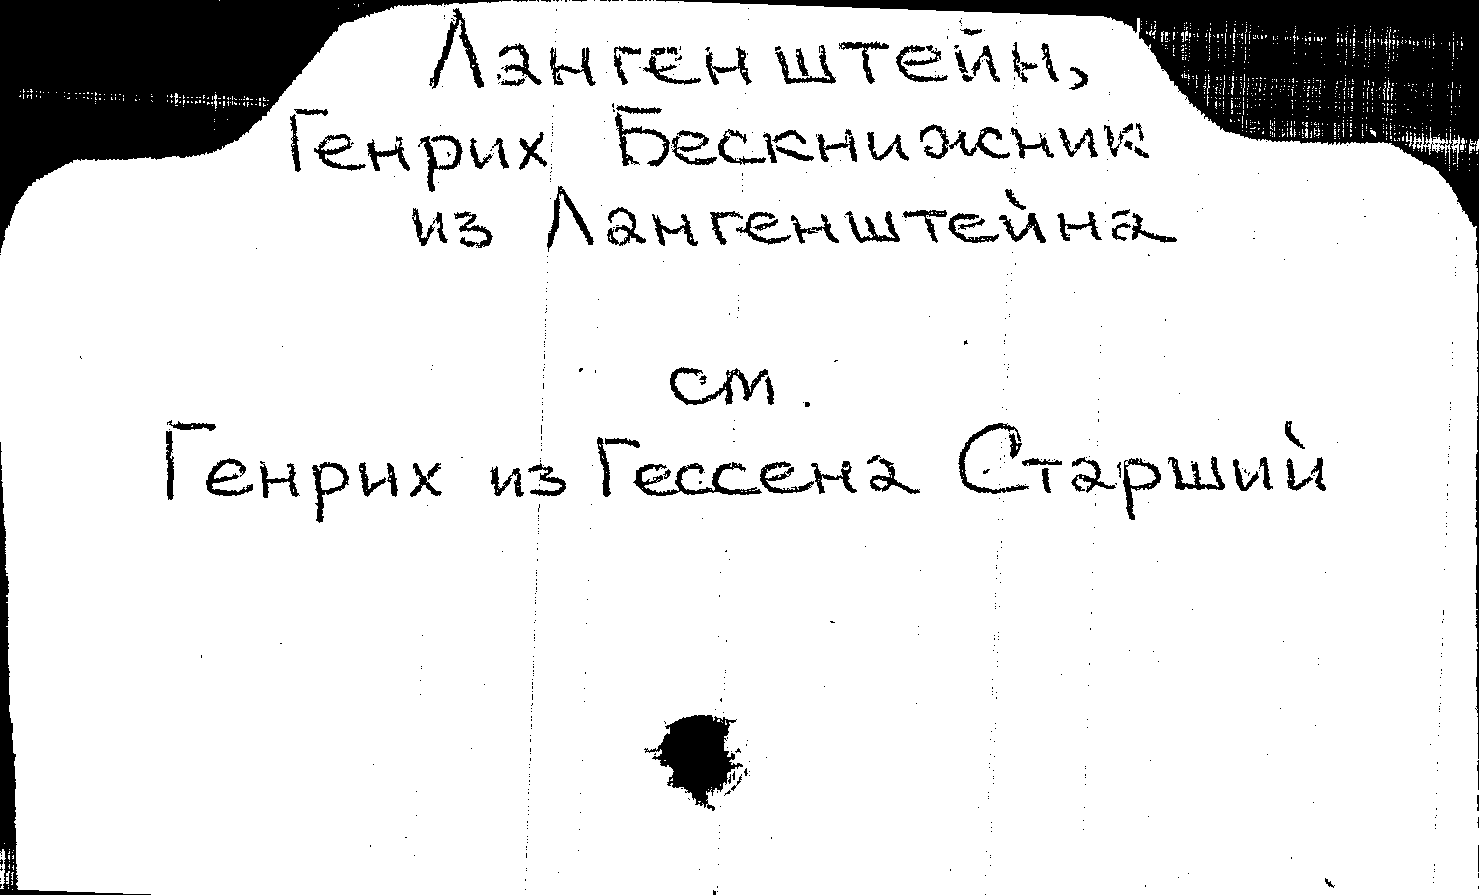 Лангенштейн,
Генрих Бескнижник
из Лангенштейна
см.
Генрих из Гессена Старший